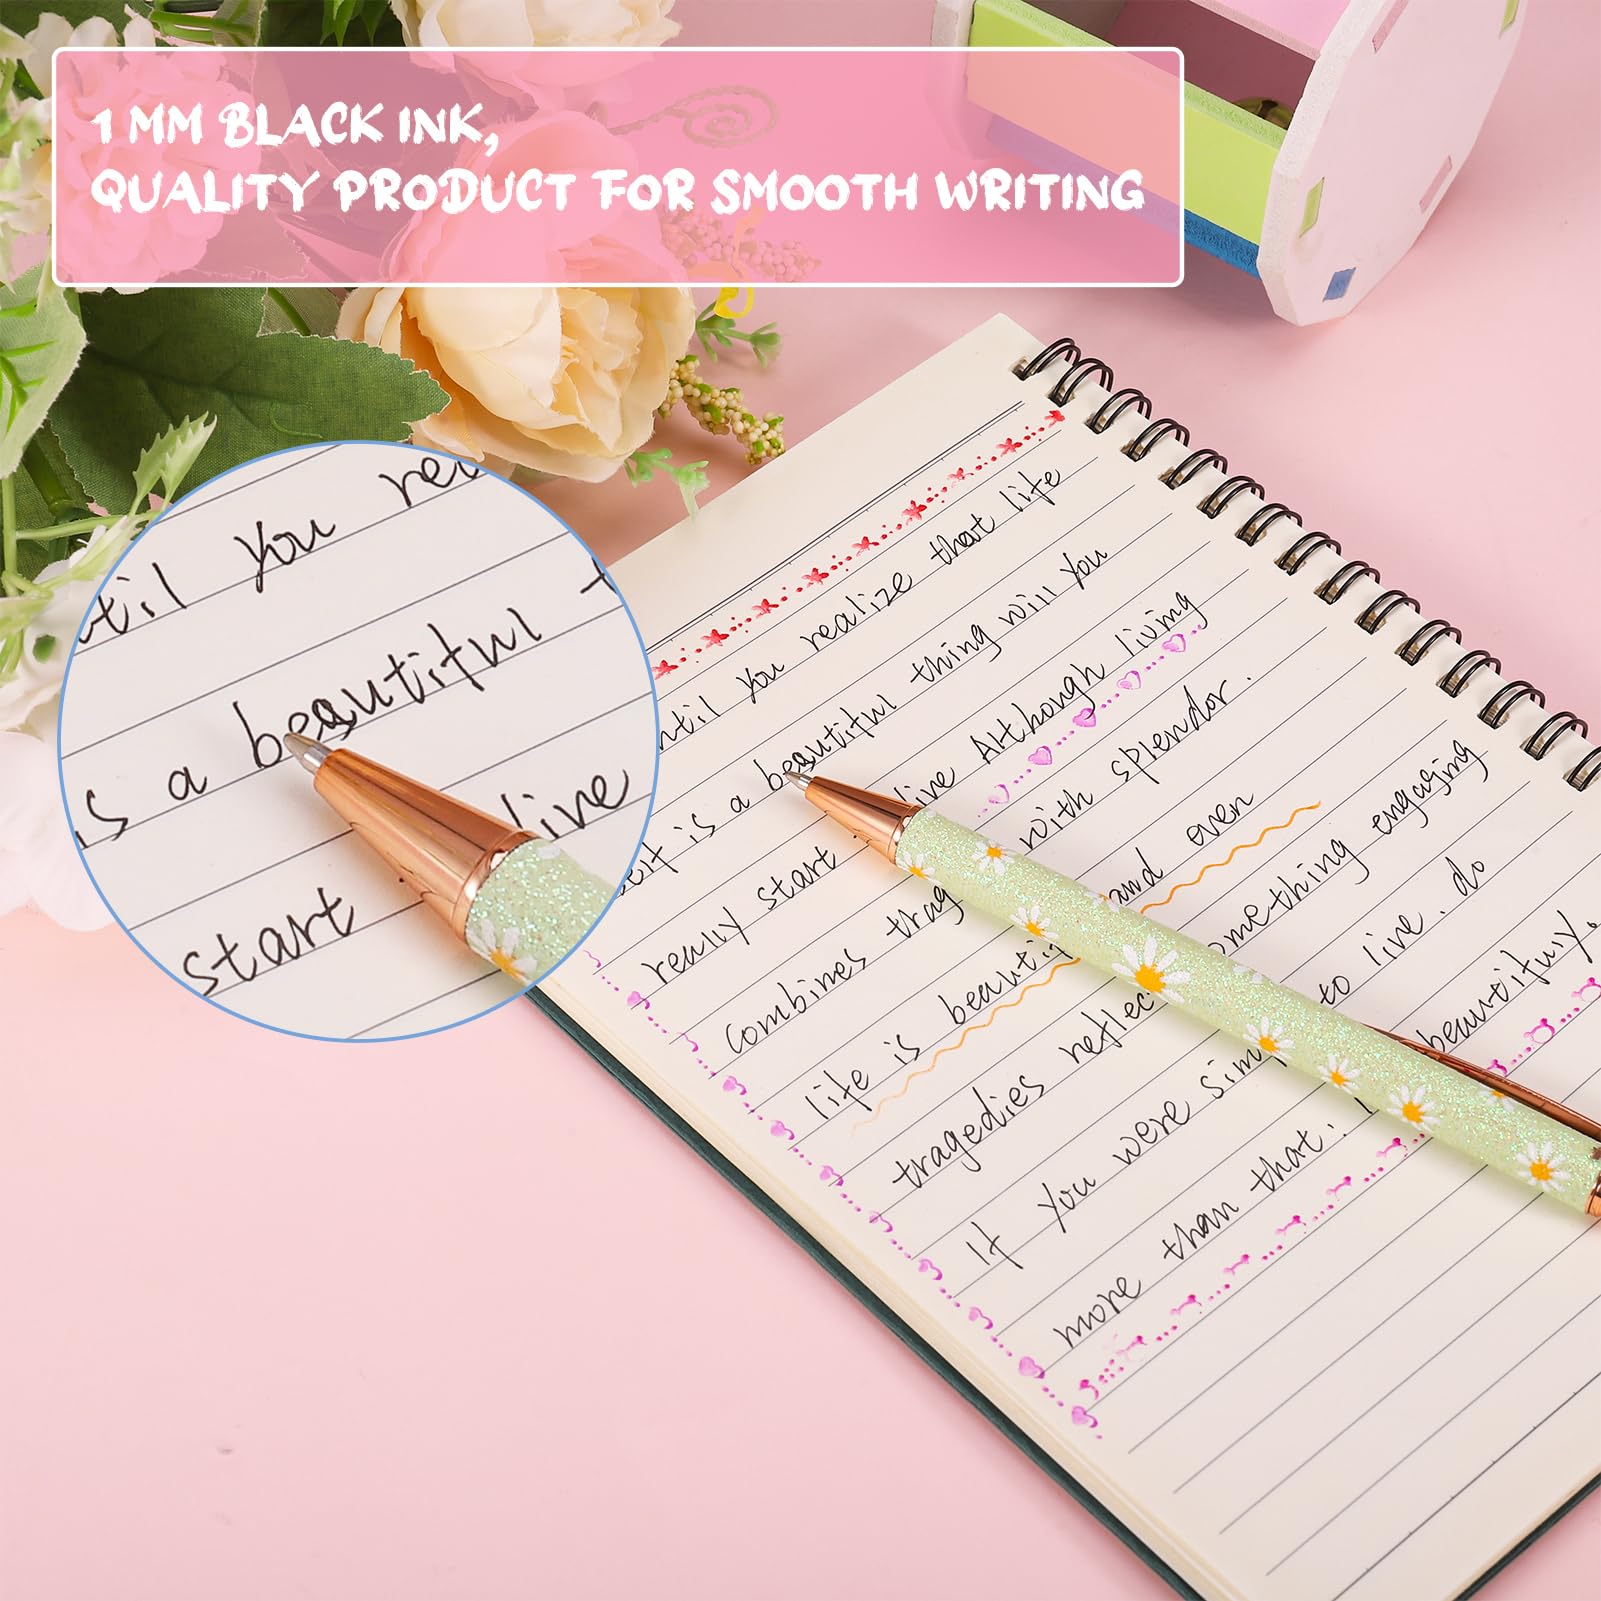 1 MM BLACK INK,
QUALITY PRODUCT FOR SMOOTH WRITING
you
is a beautiful
start live
until you realize that life
itself is a beautiful thing will you
really start live Although living
combines with splendor.
life is and even
tragedies something engaging
If you were to live. do
more than that. beautifully.